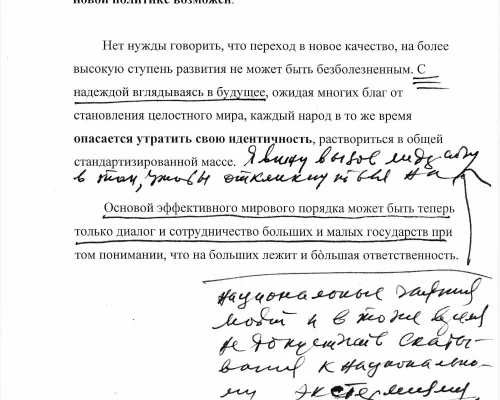 новой политике возможен.
Нет нужды говорить, что переход в новое качество, на более
высокую ступень развития не может быть безболезненным. С
надеждой вглядываясь в будущее, ожидая многих благ от
становления целостного мира, каждый народ в то же время
опасается утратить свою идентичность, раствориться в общей
стандартизированной массе. Я вижу вызов лидерству
в том, чтобы откликнуться на
Основой эффективного мирового порядка может быть теперь
только диалог и сотрудничество больших и малых государств при
том понимании, что на больших лежит и бо̀льшая ответственность.
национальные чаяния
людей и в то же время
не допустить скаты-
вания к национально-
му экстремизму